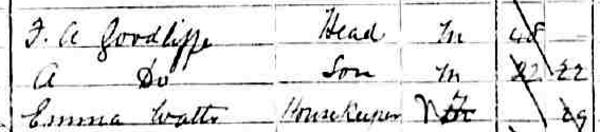 F. A Goodliffe Head M 48
A Do Son M 22 22
Emma Watts Housekeeper 29